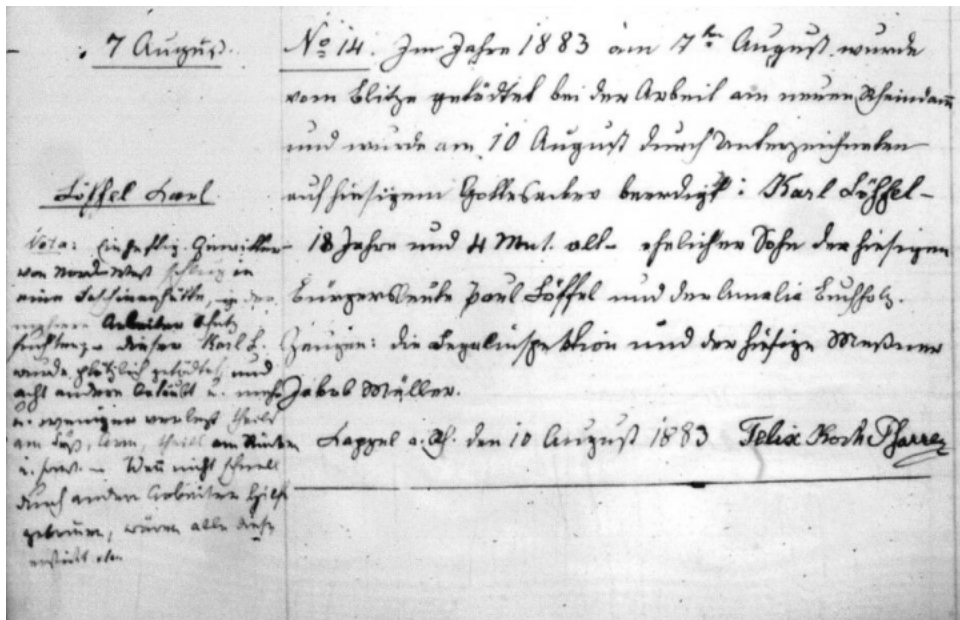 7 August.
Löffel Karl.
Nota: Ein heftig. Gewitter
von Nord-West schlug in
eine Faschinenhütte, in der
mehrere Arbeiter Schutz
suchten; – dieser Karl L.
wurde plötzlich getödtet, und
acht andere betäubt u. mehr
u. weniger verletzt theils
am Fuß, Arm, theils am Rücken
u. sonst. – Wenn nicht schnell
durch andere Arbeiter Hilfe
gekommen, wären alle diese
erstickt
No 14. Im Jahre 1883 am 7ten August wurde
vom Blitze getödtet bei der Arbeit am neuen Rheindam̅
und wurde am 10 August durch Unterzeichneten
auf hiesigem Gottesacker beerdigt: Karl Löffel –
18 Jahre und 4 Mnt. alt – ehelicher Sohn der hiesigen
Bürgersleute Paul Löffel und der Amalia Buchholz.
Zeugen: die Legalinspektion und der hiesige Meßner
Jakob Müller.
Kappel a. Rh. den 10 August 1883 Felix Koch Pfarrer